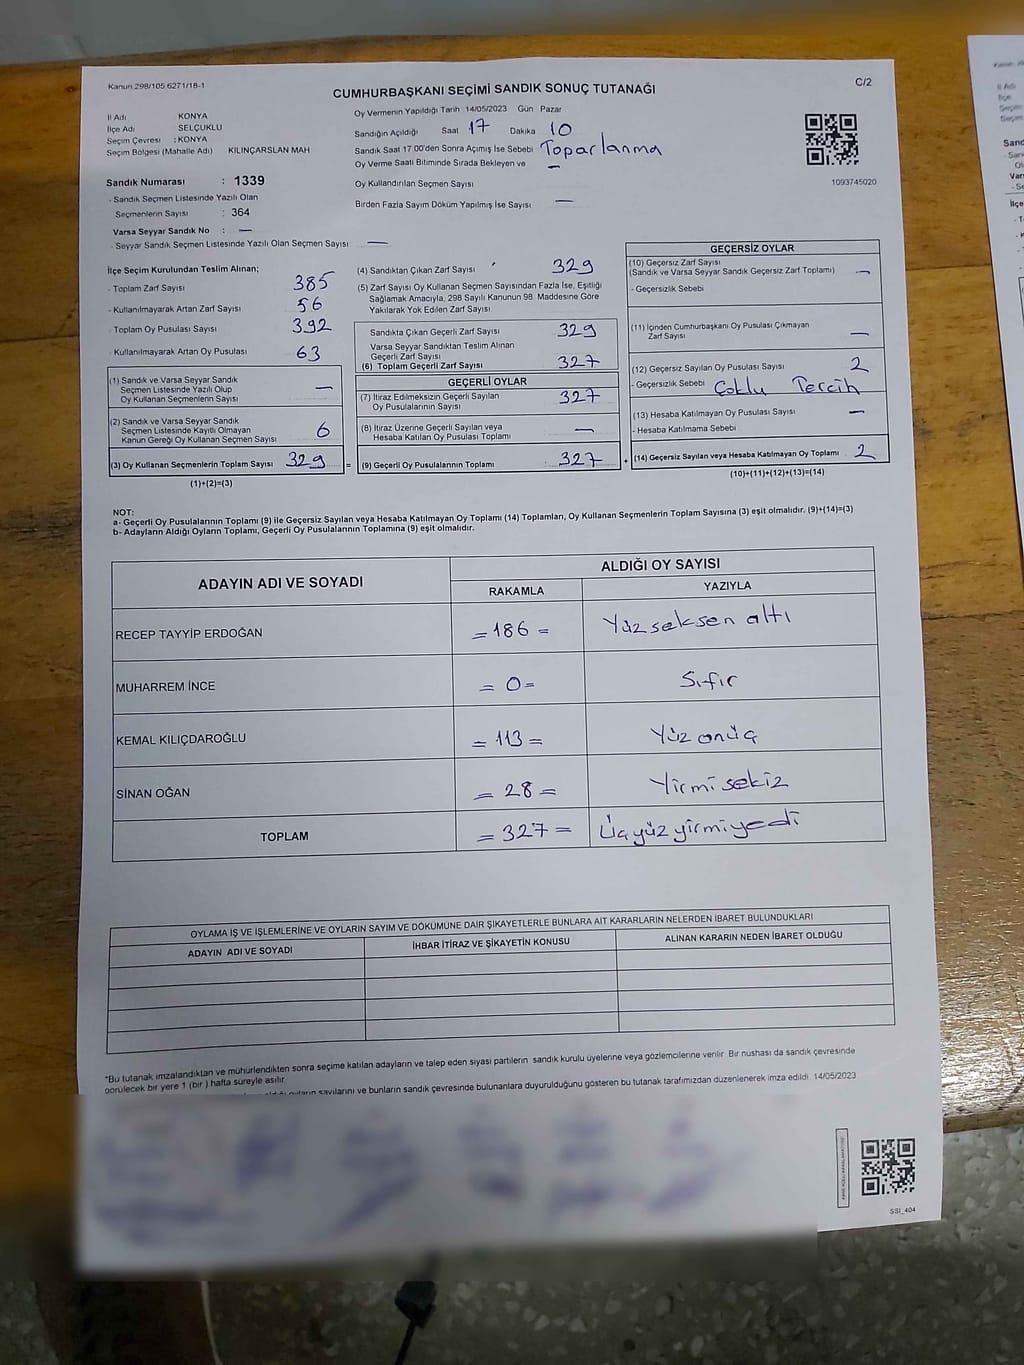 Kanun 298/105 6271/18-1
CUMHURBAŞKANI SEÇİMİ SANDIK SONUÇ TUTANAĞI
C/2
İl Adı KONYA
İlçe Adı SELÇUKLU
Seçim Çevresi : KONYA
Seçim Bölgesi (Mahalle Adı) KILINÇARSLAN MAH
Sandık Numarası : 1339
- Sandık Seçmen Listesinde Yazılı Olan
Seçmenlerin Sayısı : 364
Varsa Seyyar Sandık No : —
- Seyyar Sandık Seçmen Listesinde Yazılı Olan Seçmen Sayısı —
Oy Vermenin Yapıldığı Tarih 14/05/2023 Gün Pazar
Sandığın Açıldığı Saat 17 Dakika 10
Sandık Saat 17:00'den Sonra Açımış İse Sebebi Toparlanma
Oy Verme Saati Bitiminde Sırada Bekleyen ve —
Oy Kullandırılan Seçmen Sayısı
Birden Fazla Sayım Döküm Yapılmış İse Sayısı —
1093745020
İlçe Seçim Kurulundan Teslim Alınan;
- Toplam Zarf Sayısı 385
- Kullanılmayarak Artan Zarf Sayısı 56
- Toplam Oy Pusulası Sayısı 392
- Kullanılmayarak Artan Oy Pusulası 63
(1) Sandık ve Varsa Seyyar Sandık
Seçmen Listesinde Yazılı Olup
Oy Kullanan Seçmenlerin Sayısı —
(2) Sandık ve Varsa Seyyar Sandık
Seçmen Listesinde Kayıtlı Olmayan
Kanun Gereği Oy Kullanan Seçmen Sayısı 6
(3) Oy Kullanan Seçmenlerin Toplam Sayısı 329 =
(1)+(2)=(3)
(4) Sandıktan Çıkan Zarf Sayısı 329
(5) Zarf Sayısı Oy Kullanan Seçmen Sayısından Fazla İse, Eşitliği
Sağlamak Amacıyla, 298 Sayılı Kanunun 98. Maddesine Göre
Yakılarak Yok Edilen Zarf Sayısı
Sandıkta Çıkan Geçerli Zarf Sayısı 329
Varsa Seyyar Sandıktan Teslim Alınan
Geçerli Zarf Sayısı
(6) Toplam Geçerli Zarf Sayısı 327
GEÇERLİ OYLAR
(7) İtiraz Edilmeksizin Geçerli Sayılan
Oy Pusulalarının Sayısı 327
(8) İtiraz Üzerine Geçerli Sayılan veya
Hesaba Katılan Oy Pusulası Toplamı —
(9) Geçerli Oy Pusulalarının Toplamı : 327 +
GEÇERSİZ OYLAR
(10) Geçersiz Zarf Sayısı
(Sandık ve Varsa Seyyar Sandık Geçersiz Zarf Toplamı) —
- Geçersizlik Sebebi
(11) İçinden Cumhurbaşkanı Oy Pusulası Çıkmayan
Zarf Sayısı —
(12) Geçersiz Sayılan Oy Pusulası Sayısı 2
- Geçersizlik Sebebi Çoklu Tercih
(13) Hesaba Katılmayan Oy Pusulası Sayısı —
- Hesaba Katılmama Sebebi
(14) Geçersiz Sayılan veya Hesaba Katılmayan Oy Toplamı 2
(10)+(11)+(12)+(13)=(14)
NOT:
a- Geçerli Oy Pusulalarının Toplamı (9) ile Geçersiz Sayılan veya Hesaba Katılmayan Oy Toplamı (14) Toplamları, Oy Kullanan Seçmenlerin Toplam Sayısına (3) eşit olmalıdır. (9)+(14)=(3)
b- Adayların Aldığı Oyların Toplamı, Geçerli Oy Pusulalarının Toplamına (9) eşit olmalıdır.
ADAYIN ADI VE SOYADI
ALDIĞI OY SAYISI
RAKAMLA YAZIYLA
RECEP TAYYİP ERDOĞAN =186= Yüz seksen altı
MUHARREM İNCE =0= Sıfır
KEMAL KILIÇDAROĞLU =113= Yüz onüç
SİNAN OĞAN =28= Yirmi sekiz
TOPLAM =327= Üçyüz yirmiyedi
OYLAMA İŞ VE İŞLEMLERİNE VE OYLARIN SAYIM VE DÖKÜMÜNE DAİR ŞİKAYETLERLE BUNLARA AİT KARARLARIN NELERDEN İBARET BULUNDUKLARI
ADAYIN ADI VE SOYADI İHBAR İTİRAZ VE ŞİKAYETİN KONUSU ALINAN KARARIN NEDEN İBARET OLDUĞU
*Bu tutanak imzalandıktan ve mühürlendikten sonra seçime katılan adayların ve talep eden siyasi partilerin sandık kurulu üyelerine veya gözlemcilerine verilir. Bir nushası da sandık çevresinde
görülecek bir yere 1 (bir) hafta süreyle asılır.
oyların sayılarını ve bunların sandık çevresinde bulunanlara duyurulduğunu gösteren bu tutanak tarafımızdan düzenlenerek imza edildi 14/05/2023
SSI_404